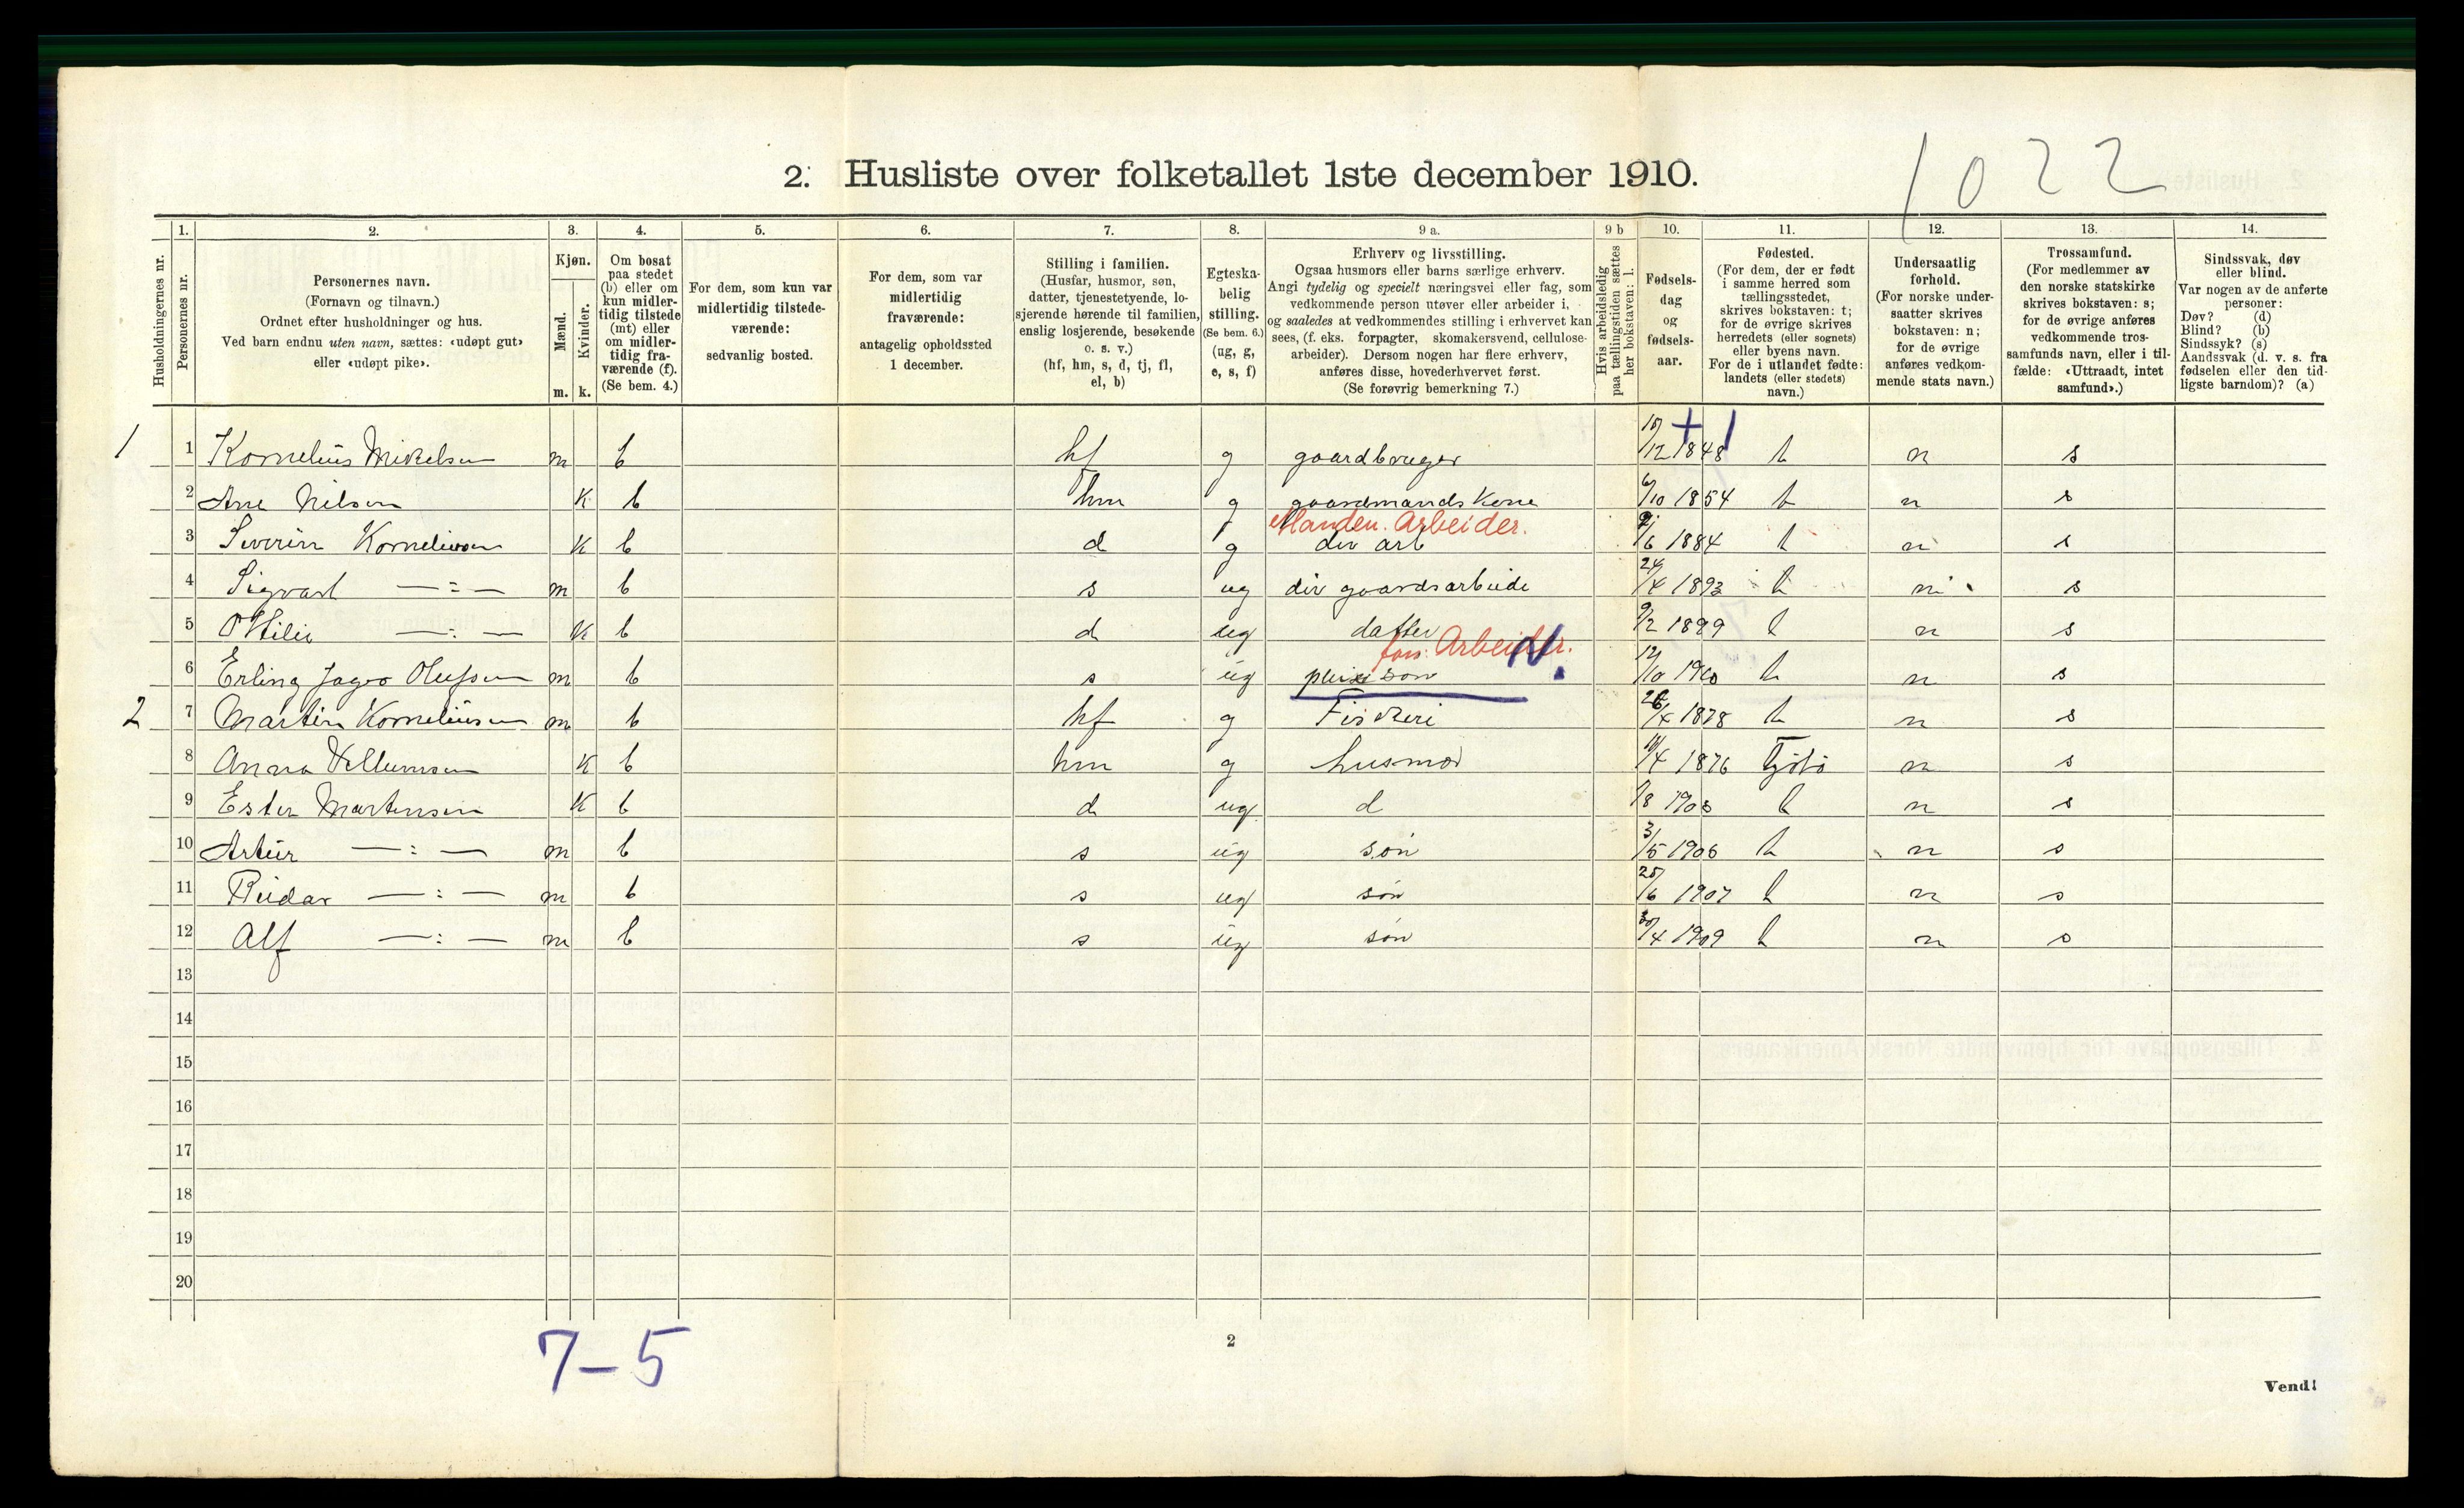 1022
2. Husliste over folketallet 1ste december 1910.
Husholdningernes nr.
1. Personernes nr.
2. Personernes navn.
(Fornavn og tilnavn.)
Ordnet efter husholdninger og hus.
Ved barn endnu uten navn, sættes: «udøpt gut»
eller «udøpt pike».
3. Kjøn.
Mænd. m.
Kvinder. k.
4. Om bosat
paa stedet
(b) eller om
kun midler-
tidig tilstede
(mt) eller
om midler-
tidig fra-
værende (f).
(Se bem. 4.)
5. For dem, som kun var
midlertidig tilstede-
værende:
sedvanlig bosted.
6. For dem, som var
midlertidig
fraværende:
antagelig opholdssted
1 december.
7. Stilling i familien.
(Husfar, husmor, søn,
datter, tjenestetyende, lo-
sjerende hørende til familien,
enslig losjerende, besøkende
o. s. v.)
(hf, hm, s, d, tj, fl,
el, b)
8. Egteska-
belig
stilling.
(Se bem. 6.)
(ug, g,
e, s, f)
9 a. Erhverv og livsstilling.
Ogsaa husmors eller barns særlige erhverv.
Angi tydelig og specielt næringsvei eller fag, som
vedkommende person utøver eller arbeider i,
og saaledes at vedkommendes stilling i erhvervet kan
sees, (f. eks. forpagter, skomakersvend, cellulose-
arbeider). Dersom nogen har flere erhverv,
anføres disse, hovederhvervet først.
(Se forøvrig bemerkning 7.)
9 b Hvis arbeidsledig
paa tællingstiden sættes
her bokstaven: l.
10. Fødsels-
dag
og
fødsels-
aar.
11. Fødested.
(For dem, der er født
i samme herred som
tællingsstedet,
skrives bokstaven: t;
for de øvrige skrives
herredets (eller sognets)
eller byens navn.
For de i utlandet fødte:
landets (eller stedets)
navn.)
12. Undersaatlig
forhold.
(For norske under-
saatter skrives
bokstaven: n;
for de øvrige
anføres vedkom-
mende stats navn.)
13. Trossamfund.
(For medlemmer av
den norske statskirke
skrives bokstaven: s;
for de øvrige anføres
vedkommende tros-
samfunds navn, eller i til-
fælde: «Uttraadt, intet
samfund».)
14. Sindssvak, døv
eller blind.
Var nogen av de anførte
personer:
Døv? (d)
Blind? (b)
Sindssyk? (s)
Aandssvak (d. v. s. fra
fødselen eller den tid-
ligste barndom)? (a)
+ 1
1 1 Kornelius Mikelsen m b hf g gaardbruger /12 1848 t n s
2 Ane Nilsen K b hm g gaardmands Kone 6/10 1854 t n s
Manden. Arbeider.
3 Severin Korneliusen K b d g div arb /6 1884 t n s
4 Sigvart —:— m b s ug div gaardsarbeide 24/4 1893 t n s
5 Ottilie —:— K b d ug datter 9/2 1899 t n s
fors: Arbeider. N.
6 Erling Olufsen m b s ug pleiesøn 12/10 1900 t n s
2 7 Martin Korneliusen m b hf g Fiskeri 26/4 1878 t n s
8 Anna Villumsen K b hm g husmor /4 1876 Tjøtö n s
9 Ester Martinsen K b d ug d /8 t n s
10 Artur —:— m b s ug søn 3/5 1906 t n s
11 Reidar —:— m b s ug søn 25/6 1907 t n s
12 Alf —:— m b s ug søn 30/4 1909 t n s
13
14
15
16
17
18
19
20
7–5
2
Vend!